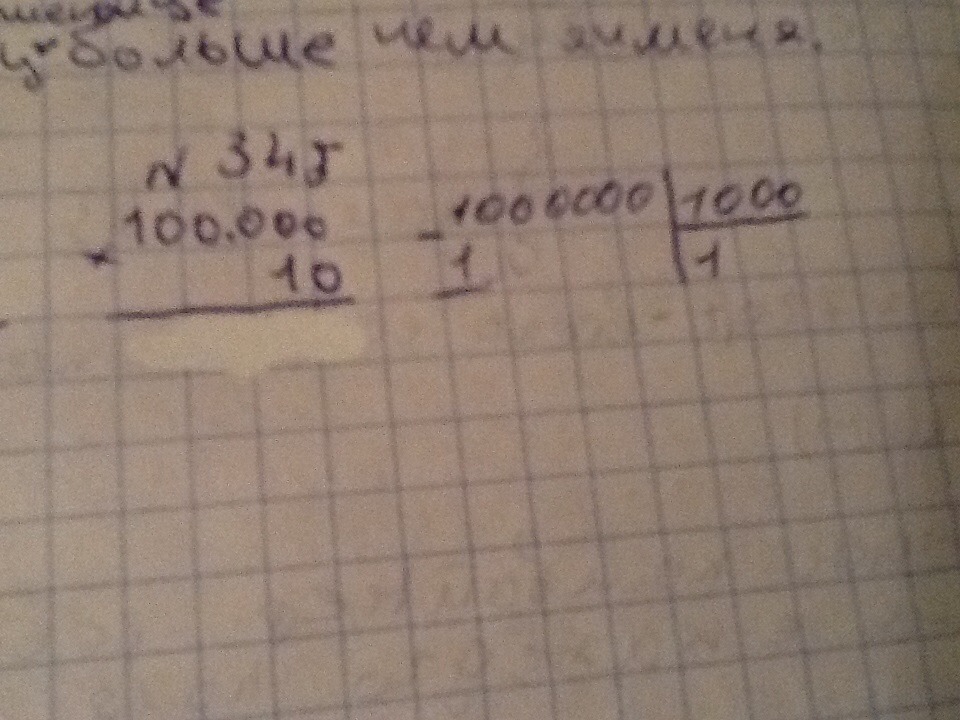 больше чем ячменя.
N 345
100.000
× 10
- 1000000 | 1000
1 | 1